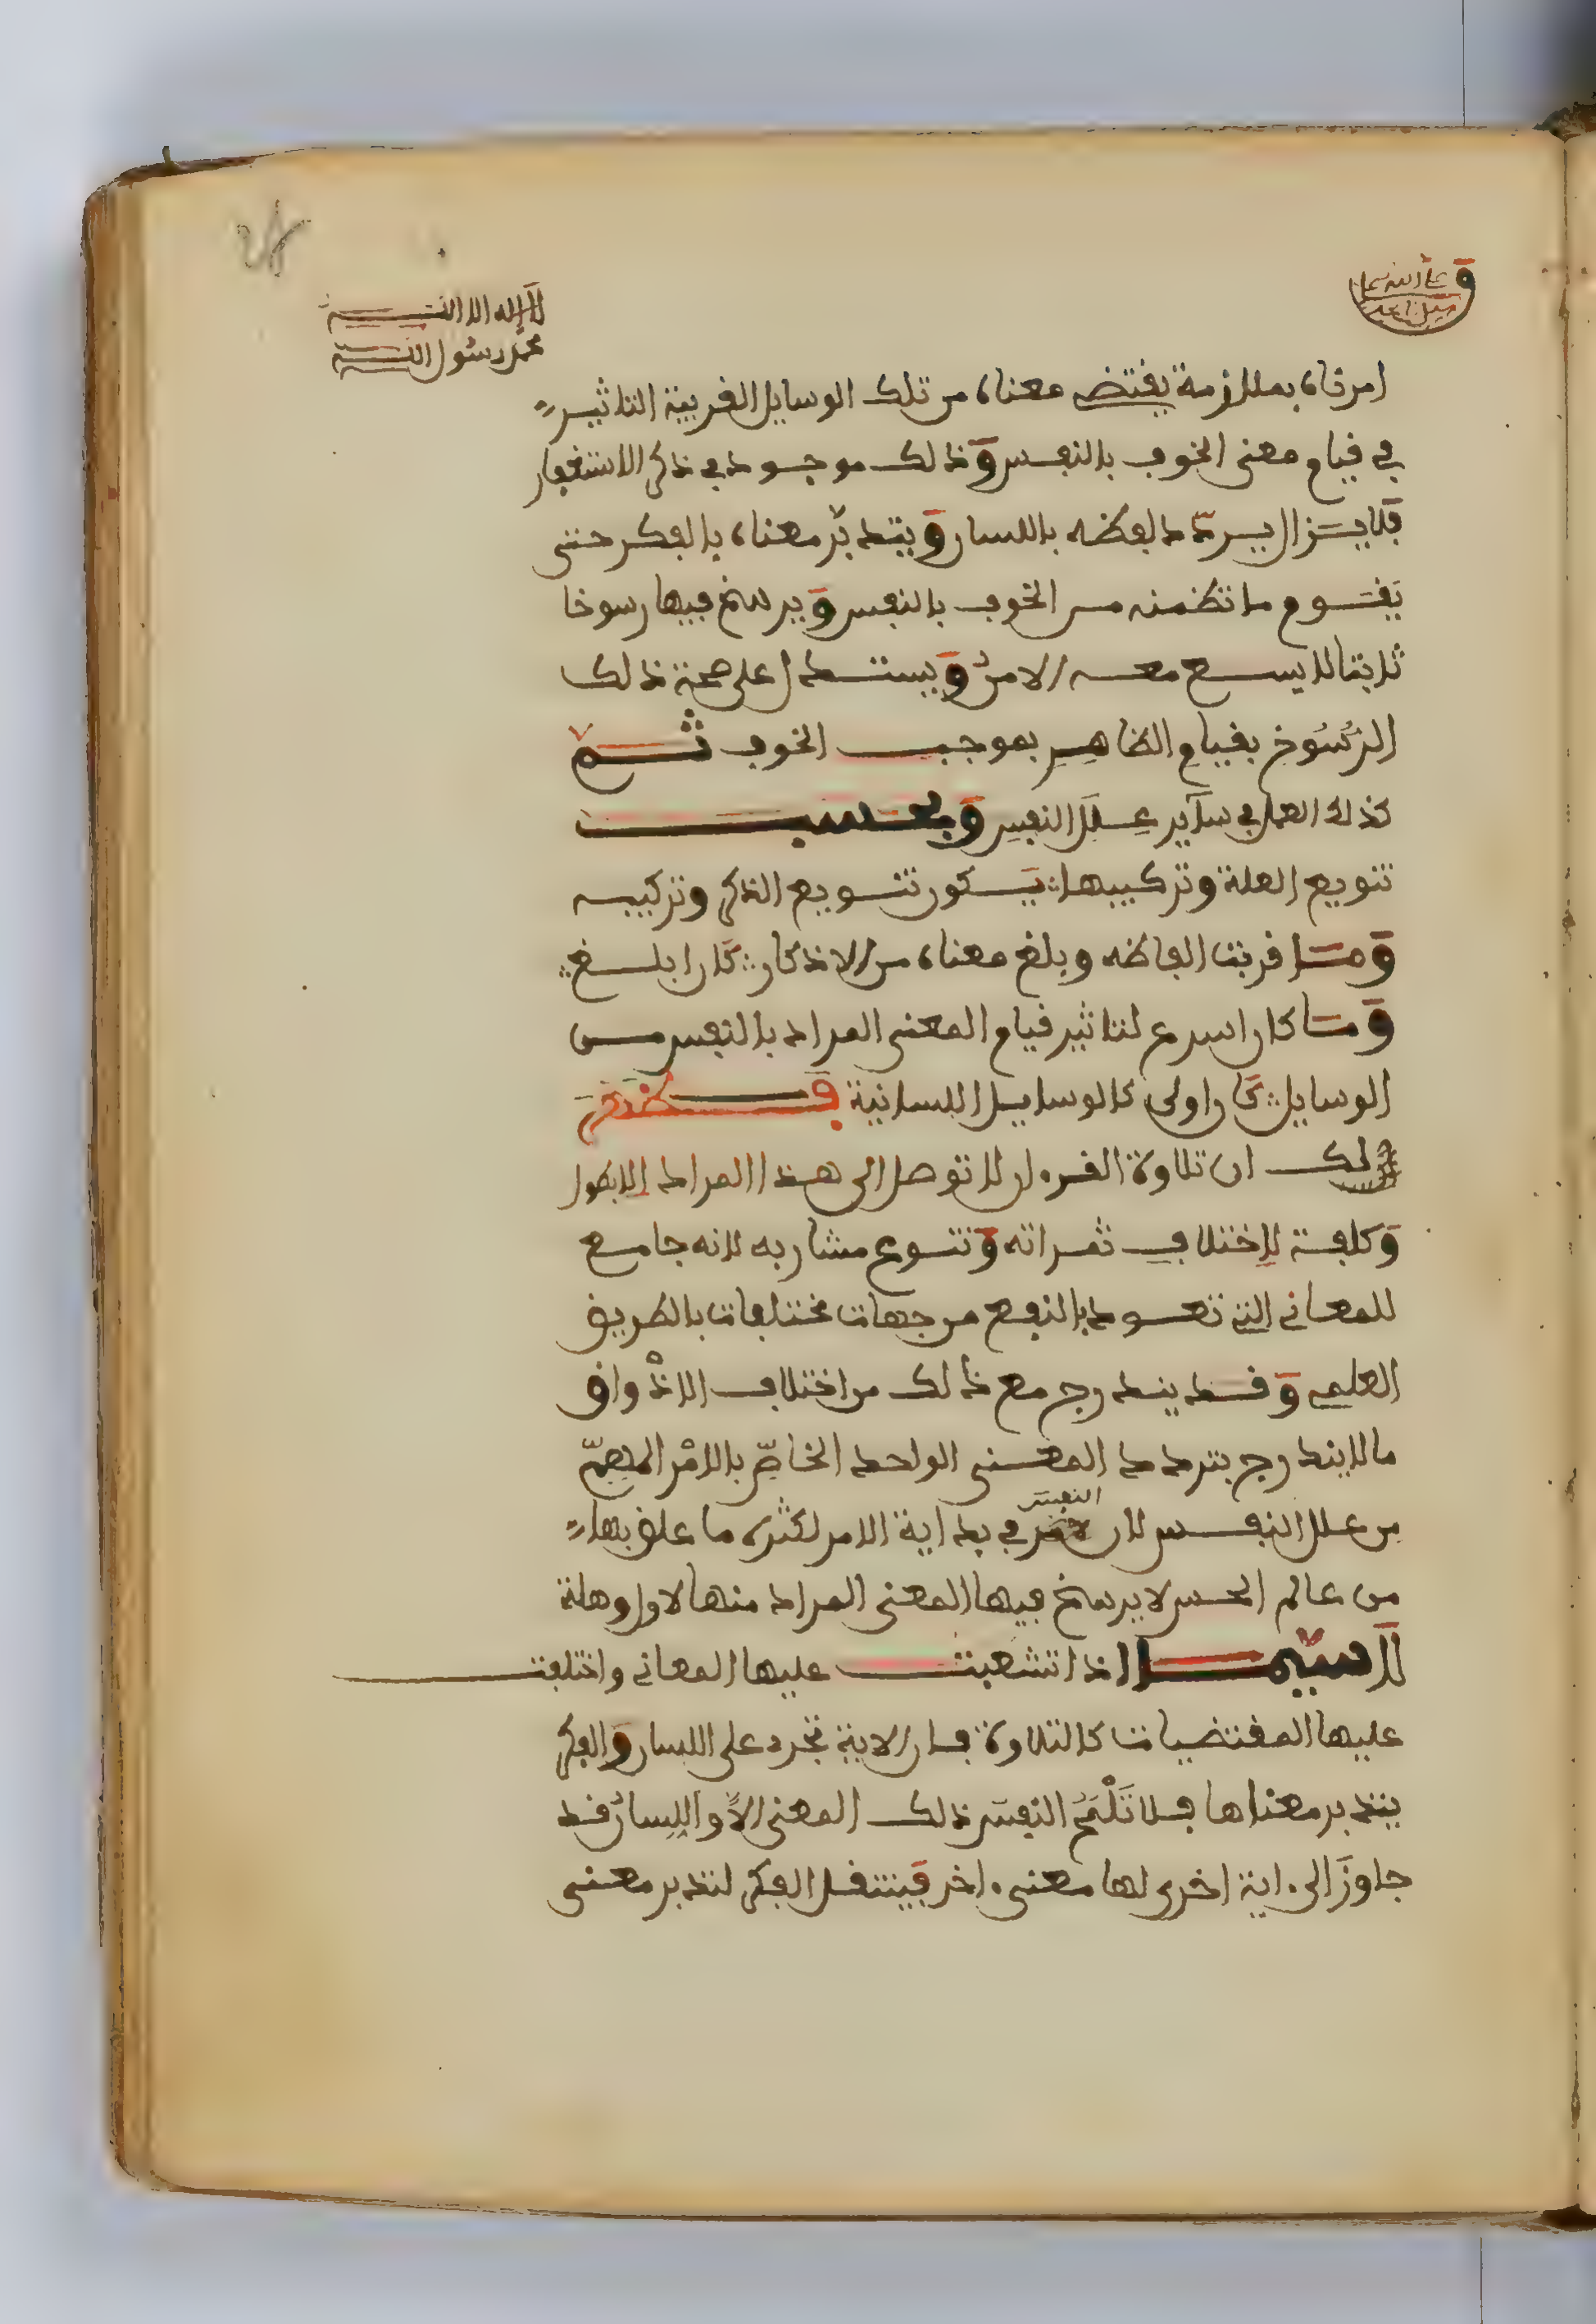 لا إله الا الله
محمد رسول الله
امرناه بملازمة يقتضى معناه من تلك الوسايل القريبة التاثير
في قيام معنى الخوف بالنفس وذلك موجود في ذكر الاستغفار
فلا يزال يردد لفظه باللسان ويتدبر معناه بالفكر حتى
يقوم ما تضمنه من الخوف بالنفس ويرسخ فيها رسوخا
ثابتا لا يسع معه الامن ويستدل على صحة ذلك
الرسوخ بقيام الظاهر بموجب الخوف ثم
كذلك العمل في ساير علل النفس وبحسب
تنويع العلة وتركيبها يكون تنويع الذكر وتركيبه
وما قربت الفاظه وبلغ معناه من الاذكار كان ابلغ
وما كان اسرع لتاثير قيام المعنى المراد بالنفس من
الوسايل كان اولى كالوسايل اللسانية فقد
لك ان تلاوة القرءان لا توصل الى هذا المراد الا بطول
وكلفة لاختلاف ثمراته وتنوع مشاربه لانه جامع
للمعاني التي تعود بالنفع من جهات مختلفات بالطريق
العلمي وقد يندرج مع ذلك من اختلاف الاذواق
ما لا يندرج بتردد المعنى الواحد الخاص بالامر المهم
من علل النفس لان النفس في بداية الامر لكثرة ما علق بها
من عالم الحس لا يرسخ فيها المعنى المراد منها لاول وهلة
لا سيما اذا تشعبت عليها المعاني واختلفت
عليها المقتضيات كالتلاوة فان الاية تجرد على اللسان والفكر
يتدبر معناها فلا تلمح النفس ذلك المعنى الا واللسان قد
جاوز الى ءاية اخرى لها معنى ءاخر فينتقل الفكر لتدبر معنى